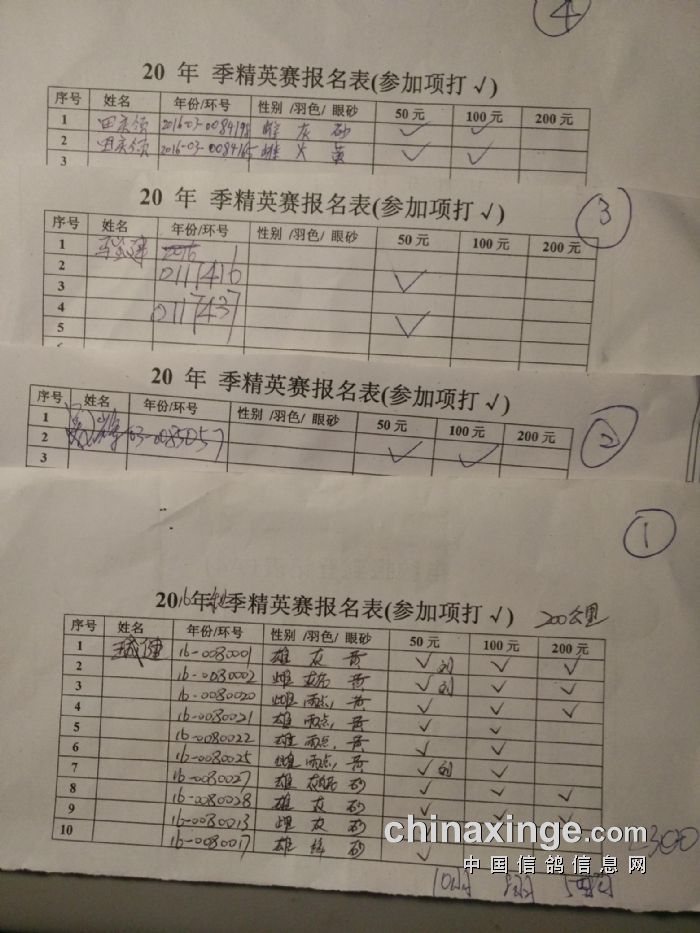 ④
20 年 季精英赛报名表(参加项打 √)
序号 姓名 年份/环号 性别 /羽色/ 眼砂 50 元 100 元 200 元
1 2016-03-0084198 雌 灰 砂 √ √
2 2016-03-0084165 雄 黄 √ √
3
20 年 季精英赛报名表(参加项打 √)
③
序号 姓名 年份/环号 性别 /羽色/ 眼砂 50 元 100 元 200 元
1 2016
2 0117416
3 √
4 0117437
5 √
20 年 季精英赛报名表(参加项打 √)
②
序号 姓名 年份/环号 性别 /羽色/ 眼砂 50 元 100 元 200 元
1
2 03-0085057 √ √
3
①
2016年秋季精英赛报名表(参加项打 √) 200公里
序号 姓名 年份/环号 性别 /羽色/ 眼砂 50 元 100 元 200 元
1 16-0080001 雄 灰 黄 √ √ √
2 16-0080002 雌 黄 √ √ √
3 16-0080020 雌 雨点, 黄 √ √ √
4 16-0080021 雄 雨点, 黄 √ √
5 16-0080022 雄 雨点, 黄 √ √
6 16-0080025 雌 雨点, 黄 √ √
7 16-0080027 雄 砂 √ √ √
8 16-0080028 雄 灰 砂 √ √ √
9 16-0080013 雌 灰 砂 √
10 16-0080017 雄 绛 砂 √
2300
chinaxinge.com
中国信鸽信息网